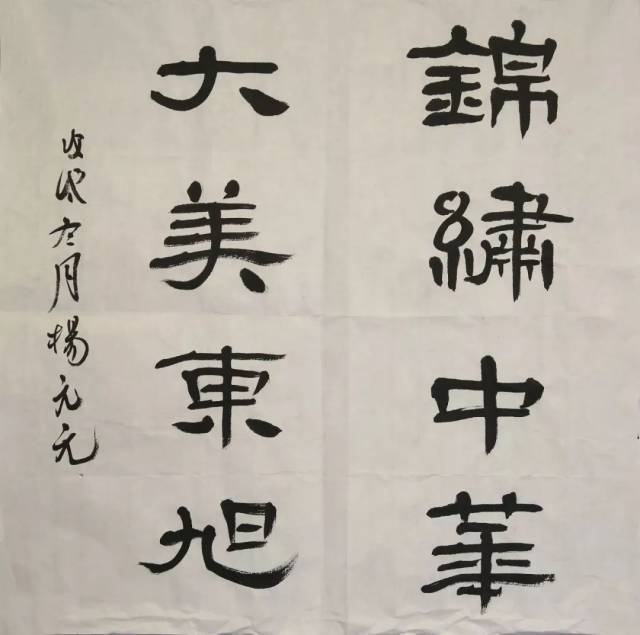 錦繡中華
大美東旭
月楊元元